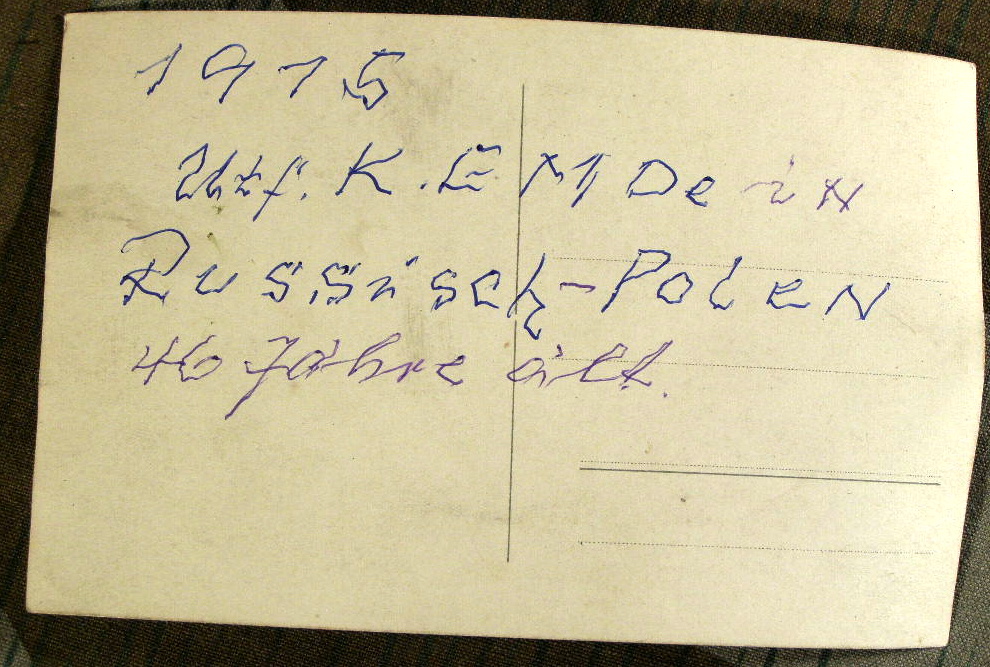 1915
Utf. K. EMDe in
Russisch-Polen
46 Jahre alt.